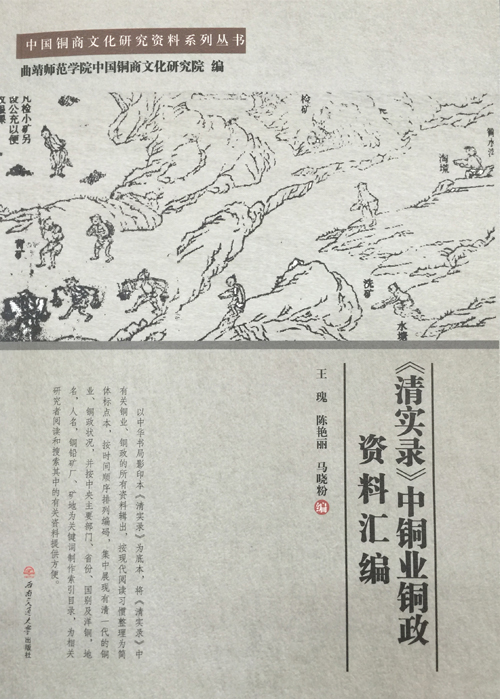 中国铜商文化研究资料系列丛书
曲靖师范学院中国铜商文化研究院 编
凡检小矿另
设公充以便
检矿
淘塃
背矿
洗矿
水塘
《清实录》中铜业铜政
资料汇编
王 瑰 陈艳丽 马晓粉 编
以中华书局影印本《清实录》为底本，将《清实录》中
有关铜业、铜政的所有资料辑出，按现代阅读习惯整理为简
体标点本，按时间顺序排列编码，集中展现有清一代的铜
业、铜政状况，并按中央主要部门、省份、国别及洋铜、地
名、人名、铜铅矿厂、矿地为关键词制作索引目录，为相关
研究者阅读和搜索其中的有关资料提供方便。
西南交通大学出版社